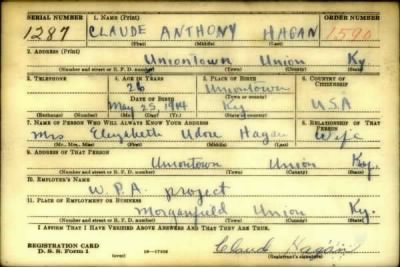 SERIAL NUMBER 1. NAME (Print) ORDER NUMBER
1287 CLAUDE ANTHONY HAGAN 1590
(First) (Middle) (Last)
2. ADDRESS (Print)
Uniontown Union Ky.
(Number and street or R. F. D. number) (Town) (County) (State)
3. TELEPHONE 4. AGE IN YEARS 5. PLACE OF BIRTH 6. COUNTRY OF CITIZENSHIP
26 Uniontown
DATE OF BIRTH (Town or county)
May 25 1914 Ky U.S.A
(Exchange) (No.) (Mo.) (Day) (Yr.) (State or country)
7. NAME OF PERSON WHO WILL ALWAYS KNOW YOUR ADDRESS 8. RELATIONSHIP OF THAT PERSON
Mrs Elizabeth Hagan Wife
(Mr., Mrs., Miss) (First) (Middle) (Last)
9. ADDRESS OF THAT PERSON
Uniontown Union Ky.
(Number and street or R. F. D. number) (Town) (County) (State)
10. EMPLOYER'S NAME
W.P.A. project
11. PLACE OF EMPLOYMENT OR BUSINESS
Morganfield Union Ky.
(Number and street or R. F. D. number) (Town) (County) (State)
I AFFIRM THAT I HAVE VERIFIED ABOVE ANSWERS AND THAT THEY ARE TRUE.
REGISTRATION CARD
D. S. S. Form 1 (over) Claud Hagan
(Registrant's signature)